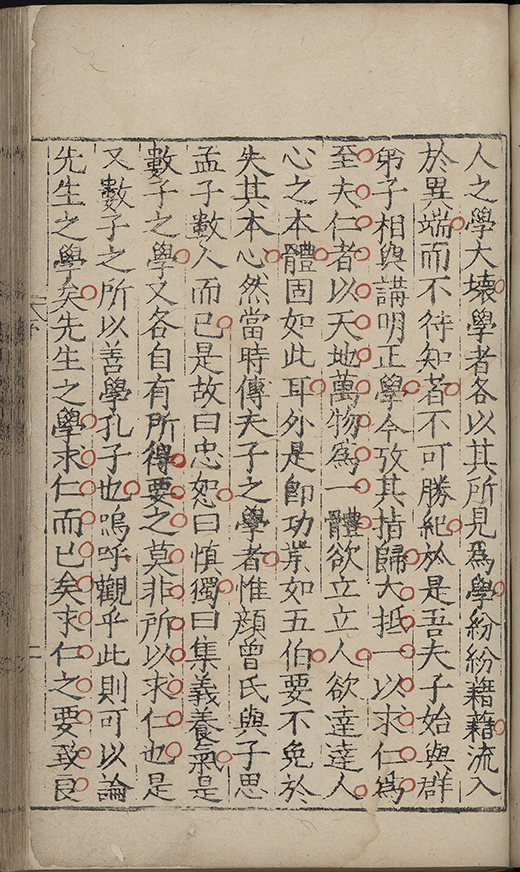 人之學大壞學者各以其所見爲學紛紛藉藉流入
於異端而不待知者不可勝紀於是吾夫子始與群
弟子相與講明正學今攷其指歸大抵一以求仁爲
至夫仁者以天地萬物爲一體欲立立人欲達達人
心之本體固如此耳外是卽功業如五伯要不免於
失其本心然當時傳夫子之學者惟顔曾氏與子思
孟子數人而已是故曰忠恕曰慎獨曰集義養氣是
數子之學又各自有所得要之莫非所以求仁也是
又數子之所以善學孔子也嗚呼觀乎此則可以論
先生之學矣先生之學求仁而已矣求仁之要致良